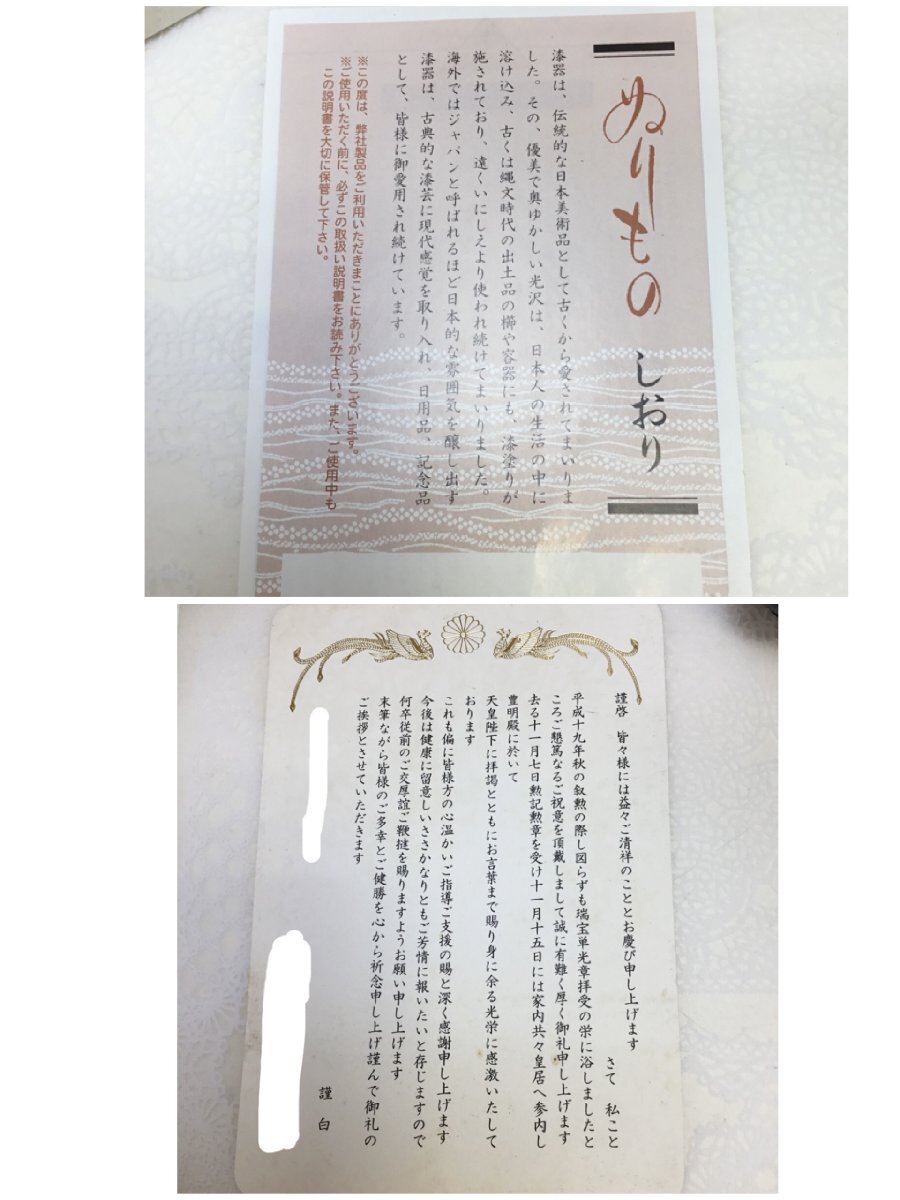 ぬりもの しおり
漆器は、伝統的な日本美術品として古くから愛されてまいりま
した。その、優美で奥ゆかしい光沢は、日本人の生活の中に
溶け込み、古くは縄文時代の出土品の櫛や容器にも、漆塗りが
施されており、遠くいにしえより使われ続けてまいりました。
海外ではジャパンと呼ばれるほど日本的な雰囲気を醸し出す
漆器は、古典的な漆芸に現代感覚を取り入れ、日用品、記念品
として、皆様に御愛用され続けています。
※この度は、弊社製品をご利用いただきまことにありがとうございます。
※ご使用いただく前に、必ずこの取扱い説明書をお読み下さい。また、ご使用中も
この説明書を大切に保管して下さい。
謹啓 皆々様には益々ご清祥のこととお慶び申し上げます
さて 私こと
平成十九年秋の叙勲の際し図らずも瑞宝単光章拝受の栄に浴しましたと
ころご懇篤なるご祝意を頂戴しまして誠に有難く厚く御礼申し上げます
去る十一月七日勲記勲章を受け十一月十五日には家内共々皇居へ参内し
豊明殿に於いて
天皇陛下に拝謁とともにお言葉まで賜り身に余る光栄に感激いたして
おります
これも偏に皆様方の心温かいご指導ご支援の賜と深く感謝申し上げます
今後は健康に留意しいささかなりともご芳情に報いたいと存じますので
何卒従前のご交厚誼ご鞭撻を賜りますようお願い申し上げます
末筆ながら皆様のご多幸とご健勝を心から祈念申し上げ謹んで御礼の
ご挨拶とさせていただきます
謹白